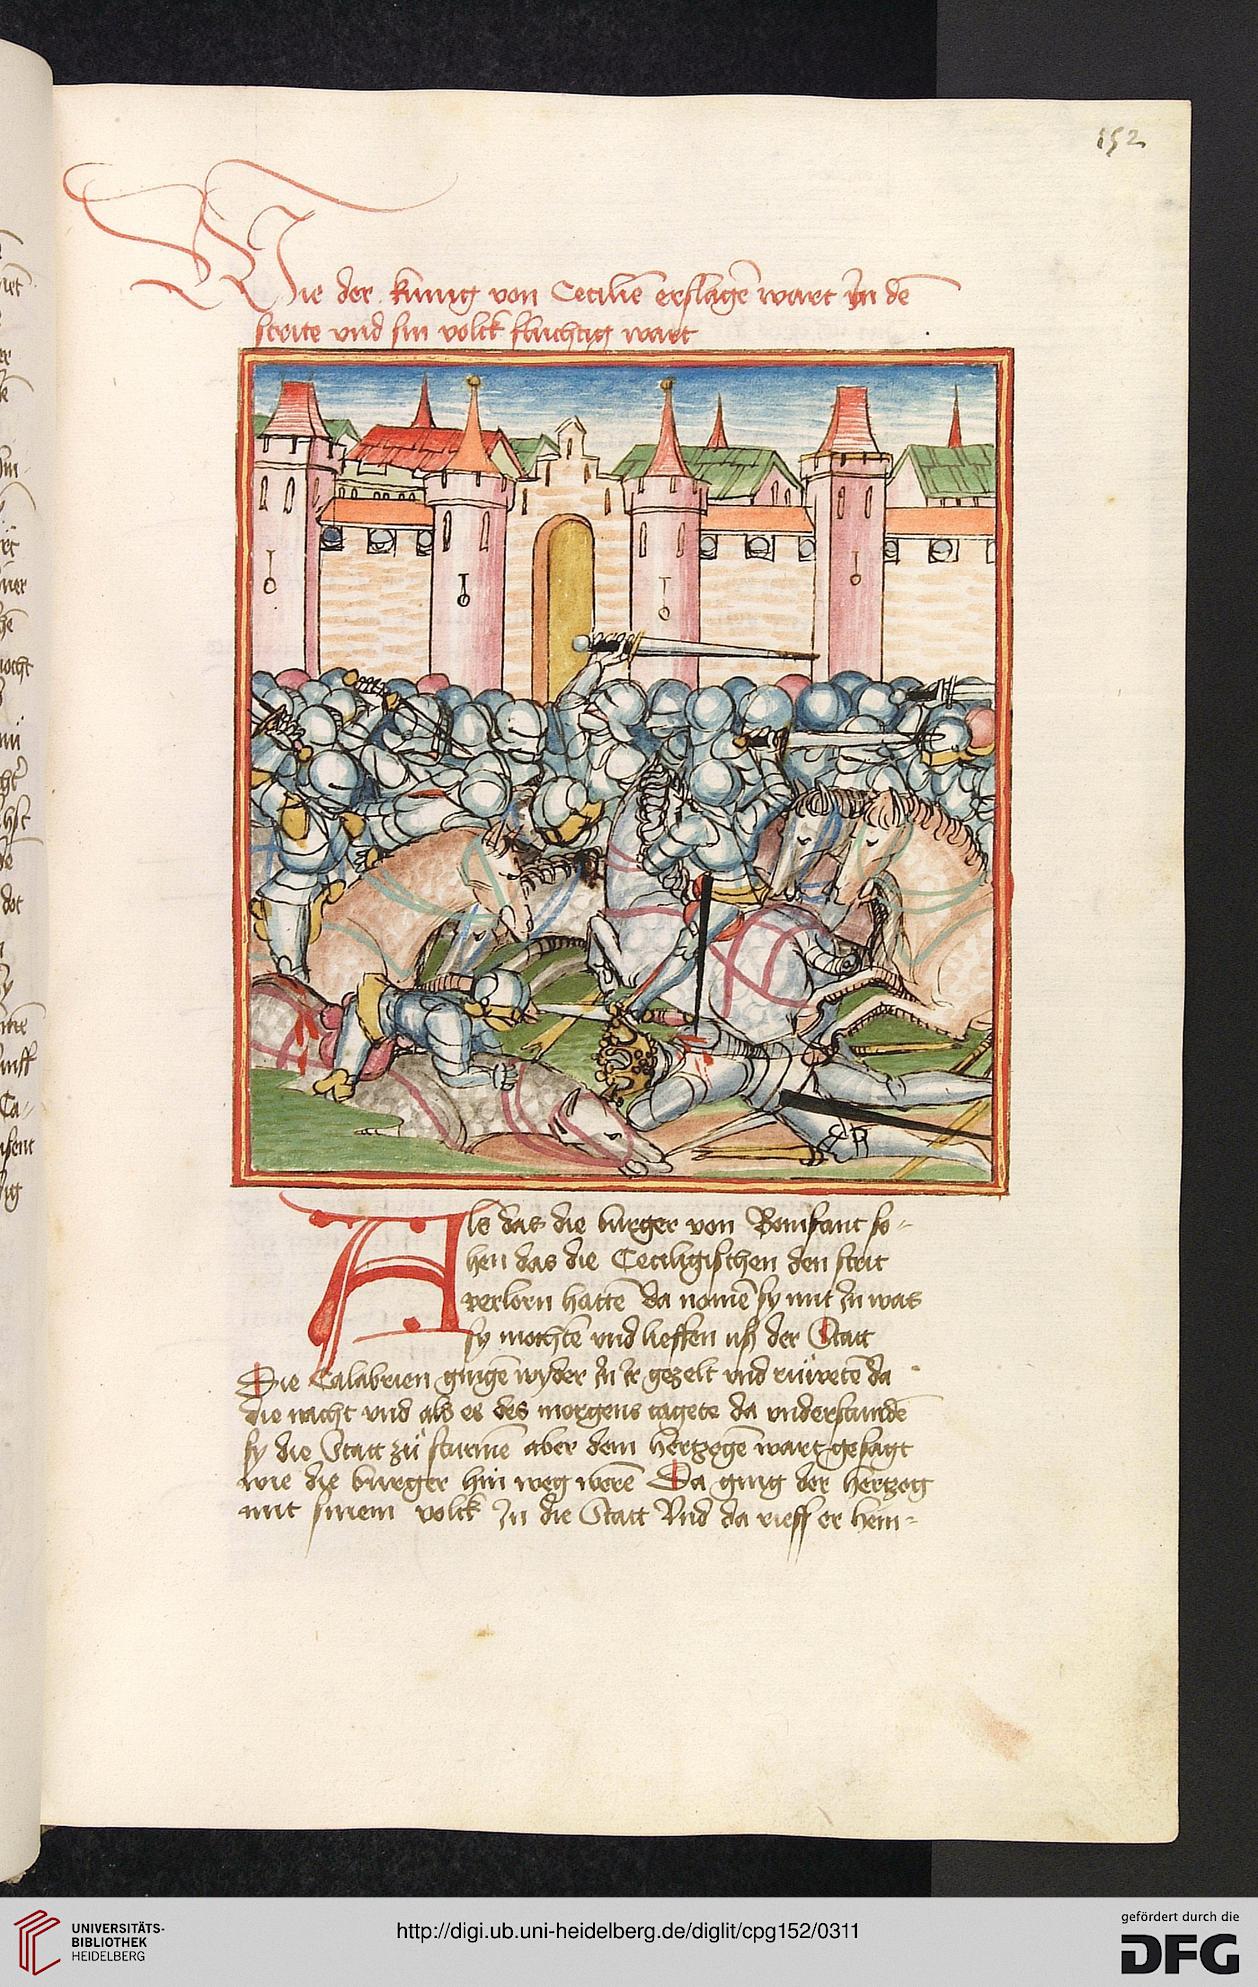 152
Wie der kunig von Cecilie͂ erslage͂ wart In de͂
strite vnd sin volck fluchtig wart
Als das die burger von Bonifant so-
hen das die Ceciligischen den strit
verlorn hatte͂ da name͂ sy mit In was
sy mochte͂ vnd lieffen uß der Statt
Die Calabrien ginge͂ wyder In Ir gezelt vnd ruͦwete͂ da
die nacht vnd als es des morgens tagete da vnderstunde͂
sy die Statt zuͦ sturme͂ aber dem hertzoge͂ wart gesagt
wie die burger hin weg were͂ Da ging der hertzog
mit sinem volck In die Statt Vnd da rieff er hein-
UNIVERSITÄTS-
BIBLIOTHEK
HEIDELBERG
http://digi.ub.uni-heidelberg.de/diglit/cpg152/0311
gefördert durch die
DFG